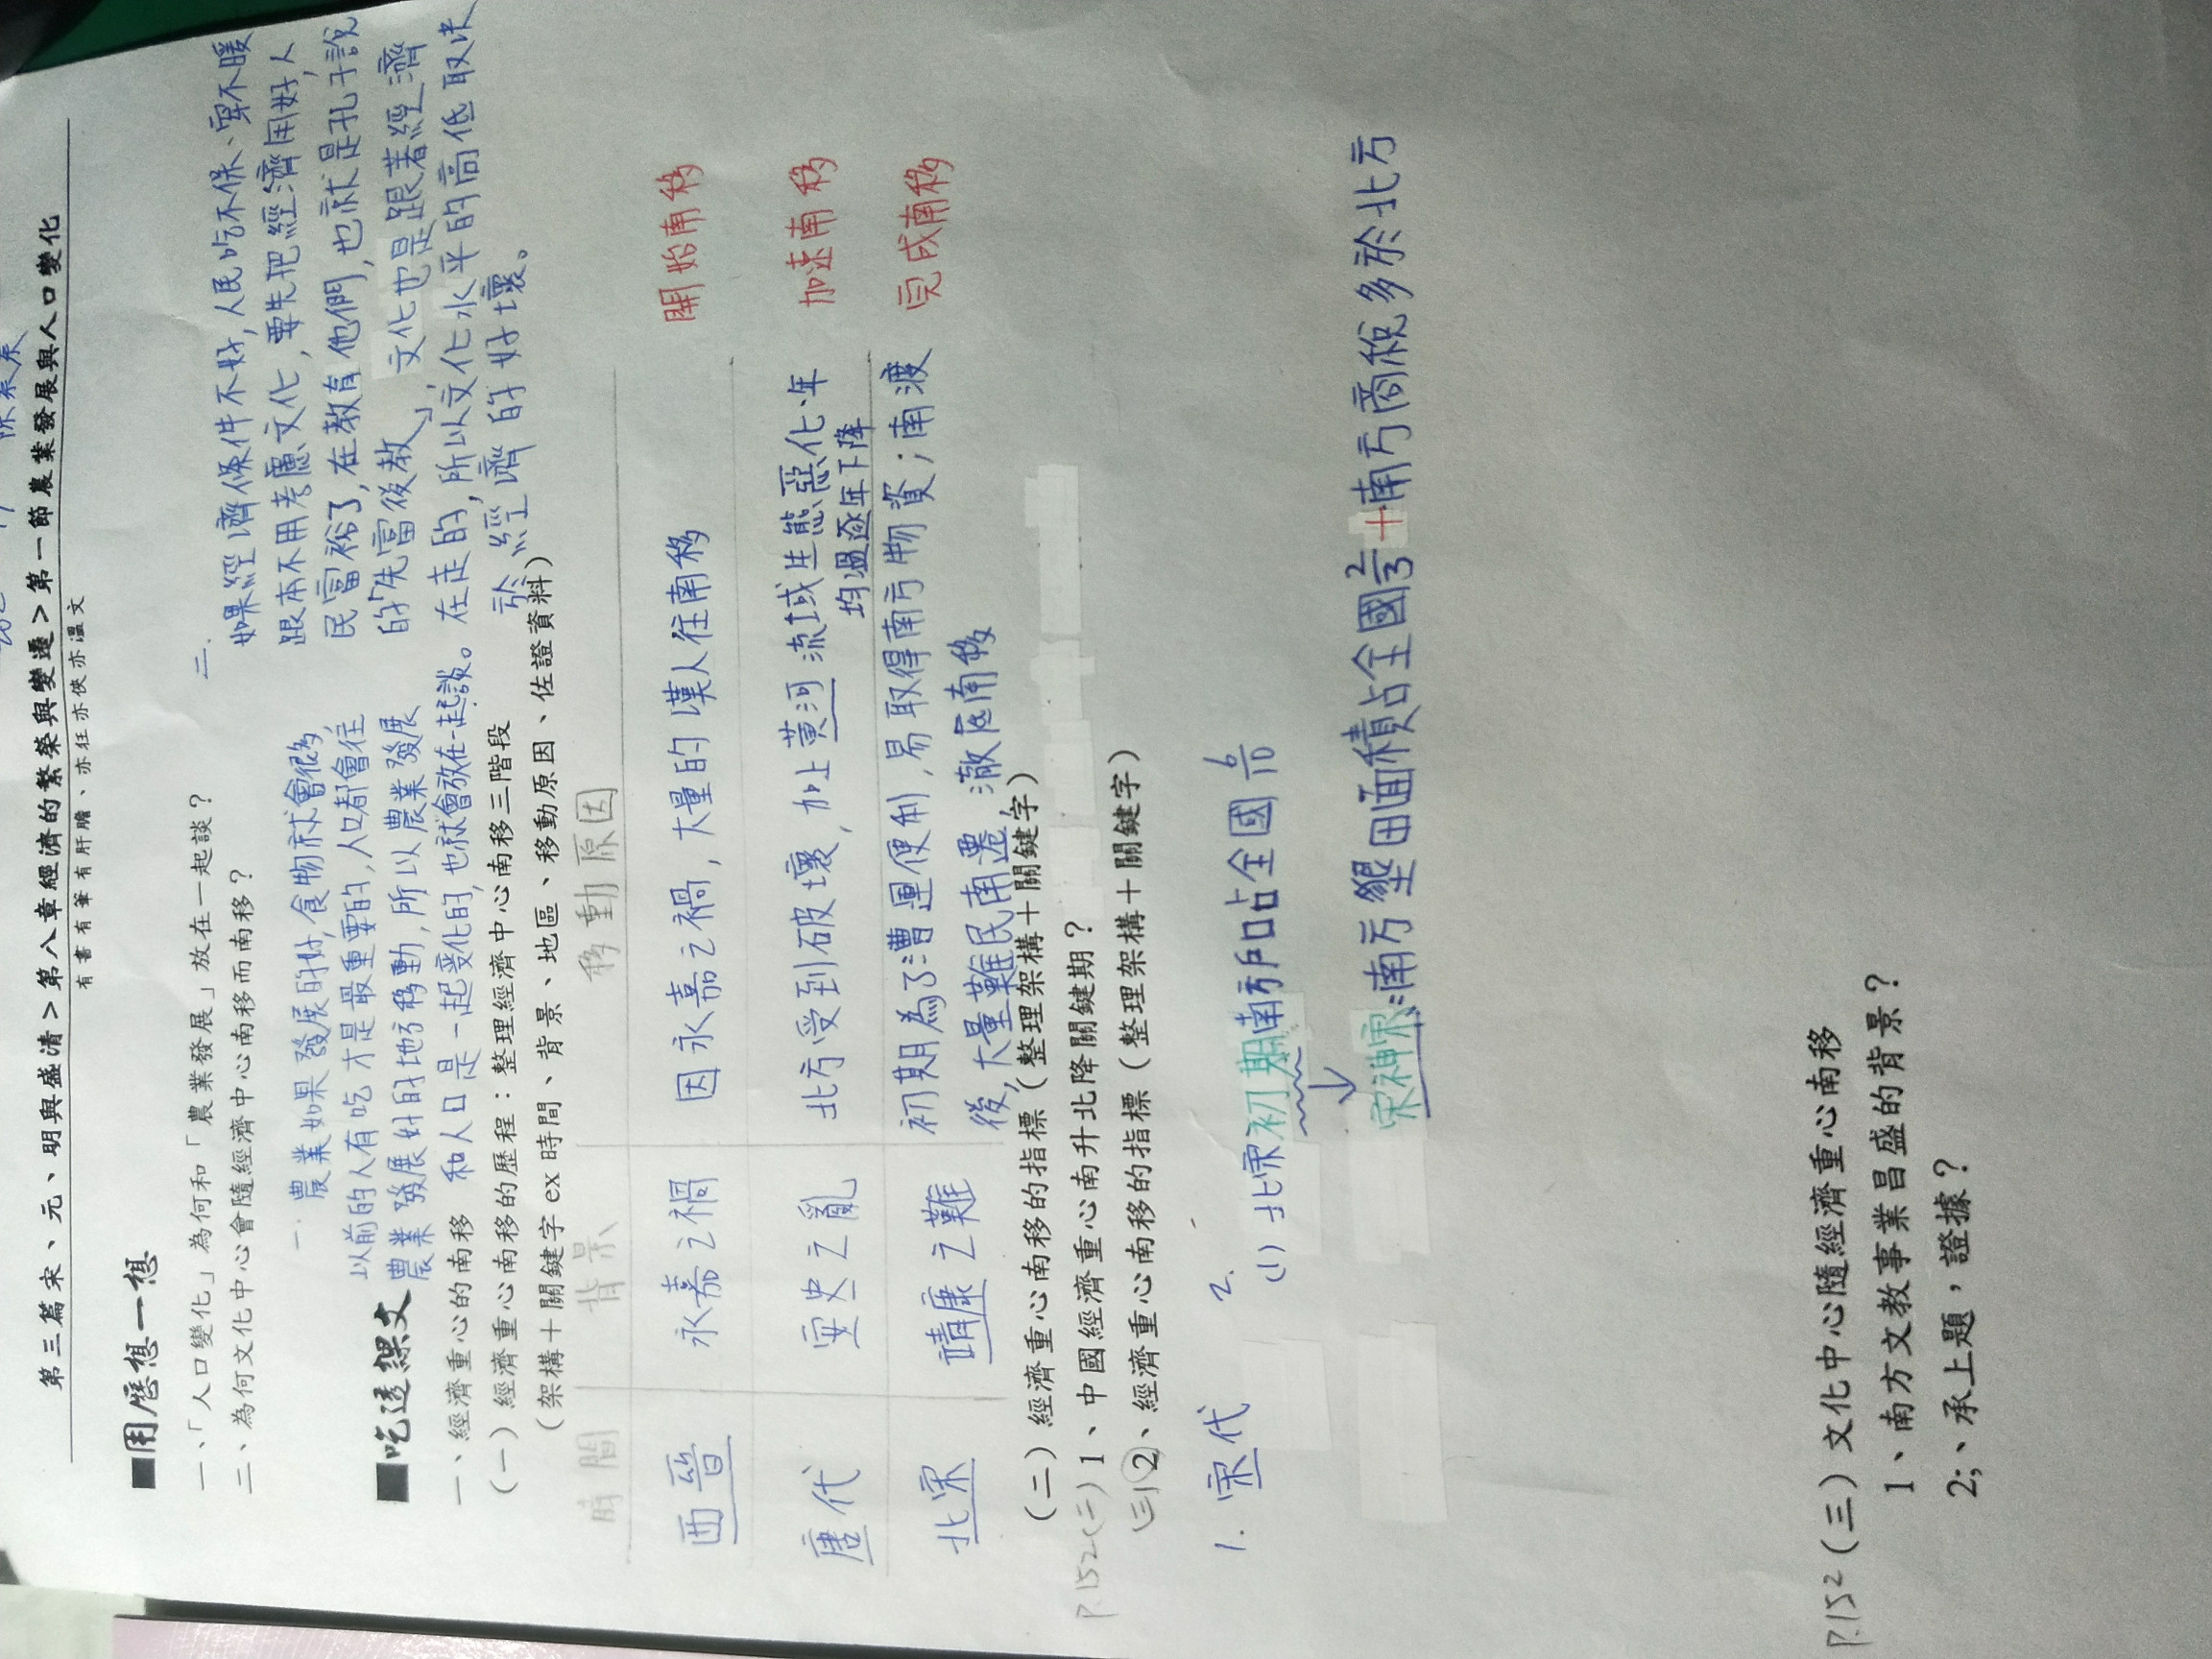 第三篇宋、元、明與盛清>第八章經濟的繁榮與變遷>第一節農業發展與人口變化
有書有筆有肝膽、亦狂亦俠亦溫文
■用歷想一想
一、「人口變化」為何和「農業發展」放在一起談？
二、為何文化中心會隨經濟中心南移而南移？
一. 農業如果發展的好,食物就會很多,
以前的人有吃才是最重要的,人口都會往
農業發展好的地方移動,所以農業發展
和人口是一起變化的,也就會放在一起談。
二.
如果經濟條件不好,人民吃不保、穿不暖
跟本不用考慮文化,要先把經濟用好,人
民富裕了,在教育他們,也就是孔子說
的「先富後教」,文化也是跟著經濟
在走的,所以文化水平的高低取決
於經濟的好壞。
■吃透課文
一、經濟重心的南移
(一)經濟重心南移的歷程：整理經濟中心南移三階段
(架構＋關鍵字 ex 時間、背景、地區、移動原因、佐證資料)
時間 背景 移動原因
西晉 永嘉之禍 因永嘉之禍,大量的嘆人往南移 開始南移
唐代 安史之亂 北方受到破壞,加上黃河流域生態惡化,年 加速南移
均溫逐年下降
北宋 靖康之難 初期為了漕運便利,易取得南方物資;南渡 完成南移
後,大量難民南遷,澈底南移
(二)經濟重心南移的指標(整理架構＋關鍵字)
P.152(二) 1、中國經濟重心南升北降關鍵期？
(三) 2、經濟重心南移的指標(整理架構＋關鍵字)
1. 宋代
2.
(1) 北宋初期:南方戶口占全國6/10
↓
宋神宗:南方墾田面積占全國2/3+南方商稅多於北方
P.152 (三)文化中心隨經濟重心南移
1、南方文教事業昌盛的背景？
2;、承上題，證據？